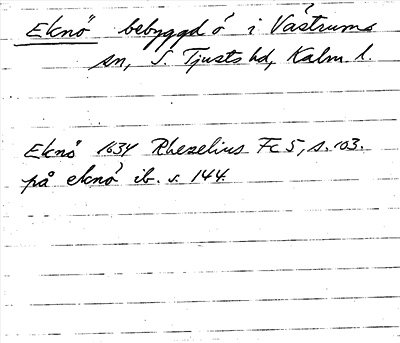 Eknö bebyggd ö i Västrums
sn, S. Tjusts hd, Kalm. l.
Eknö 1634 Rhezelius Fc 5, s. 103.
på eknö ib. s. 144.